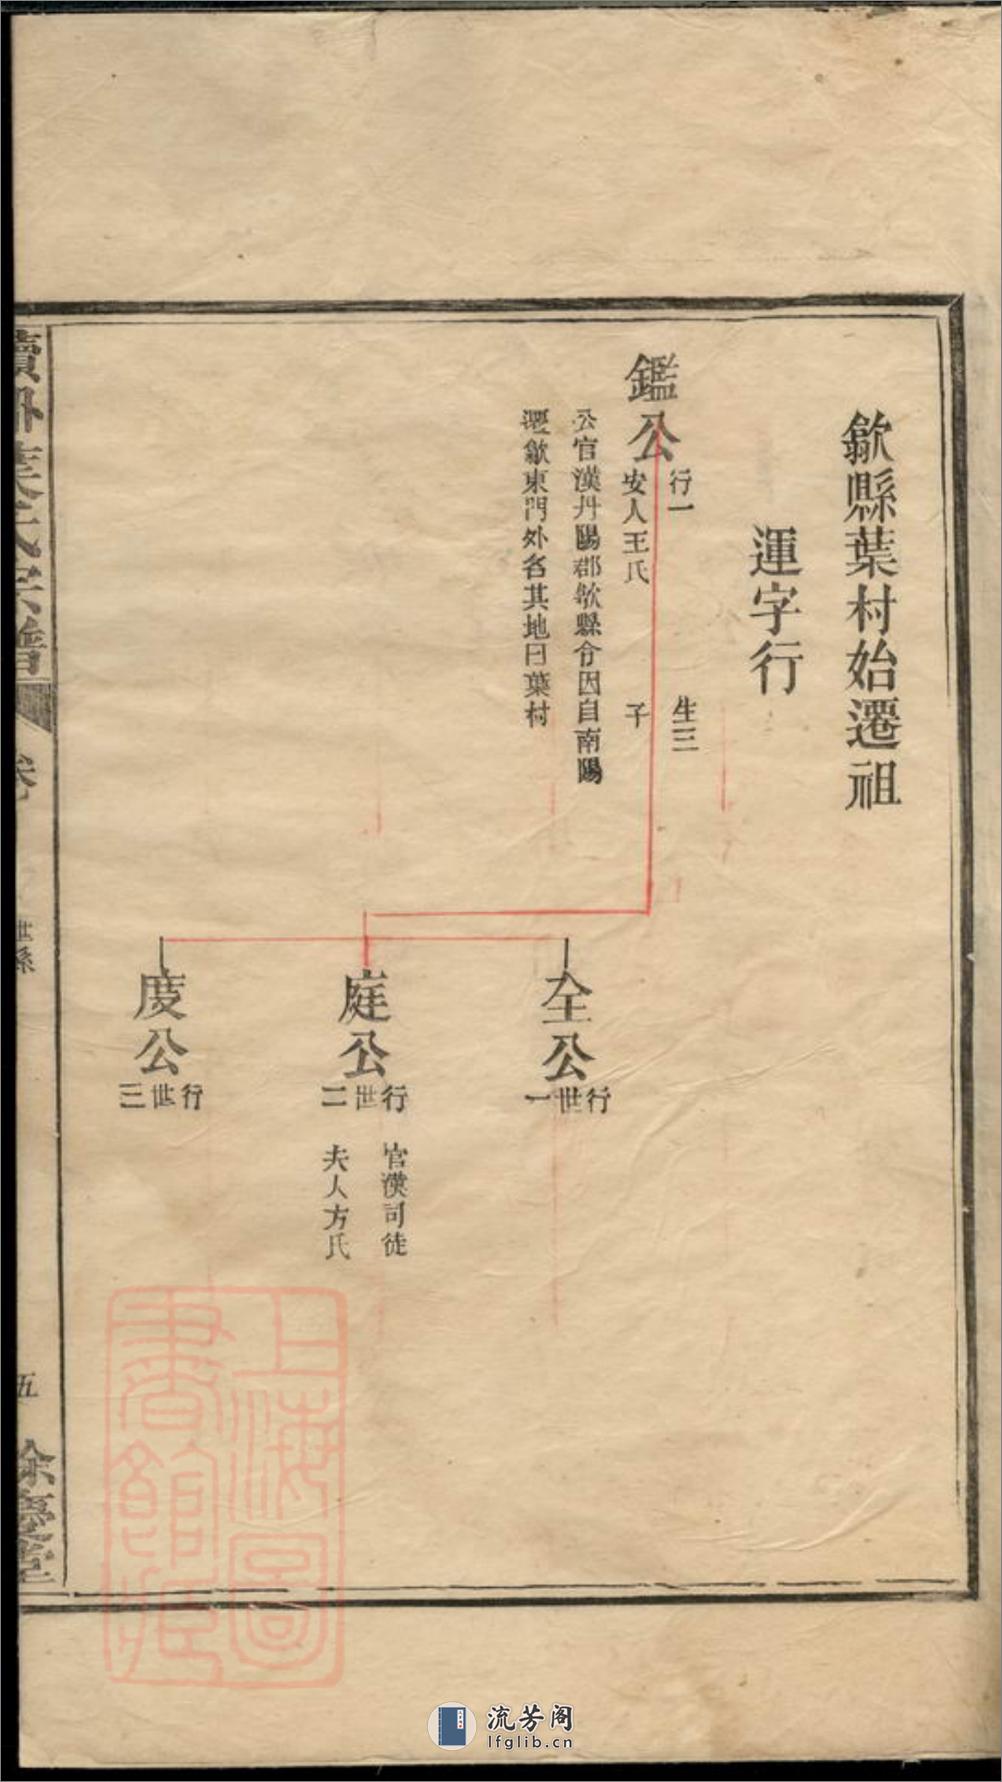 歙縣葉村始遷祖
運字行
鑑公
行一
安人王氏
生三
子
公官漢丹陽郡歙縣令因自南陽
遷歙東門外名其地曰葉村
全公
行世一
庭公
行世二
官漢司徒
夫人方氏
度公
行世三
葉氏宗譜
卷
世系
五
餘慶堂
上海圖
書館藏
流芳阁
lfglib.cn